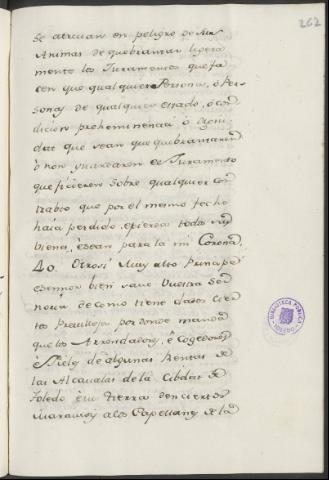 262
se atrevan en peligro de sus
Animas de quebrantar ligera
mente los Juramentos que fa
cen que qualquiera Persona, o Per
sonas de qualquier estado, o con
dicion prehemenencia o digni
dat que sean que quebrantaren
o non guardaren el Juramento
que ficieren sobre qualquier con
trabto que por el mesmo fecho
haia perdido, e pierda todos sus
bienes, e sean para la mi Corona.
40. Otrosi Muy alto Principe
e Señor bien save Vuestra Se
noria de como tiene dados cier
tos Previllejos por donde manda
que los Arrendadores, e Cogedores
e Fieles de algunas Rentas de
las Alcavalas de la Cibdat de
Toledo e su tierra den ciertos
maravedis a los Capellanes de la
BIBLIOTECA PUBLICA
TOLEDO